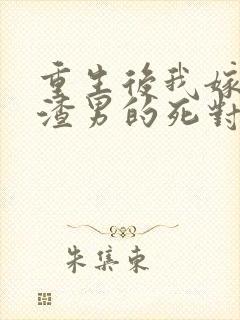 重生後我嫁
渣男的死對
朱集東